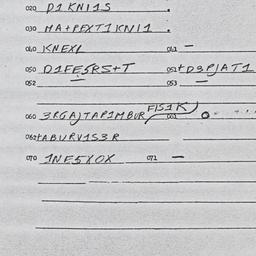 020 D1KNI1S .
030 MA+PEXT1KNI1 .
040 KNEX1 041 —
050 D1FE5RS+T 051 +D3PJAT1
052 — 053 —
060 3RGAJTAP1MBUR FIS1K 061
062 +ABURV1S3R
070 1NE5XOX 071 —